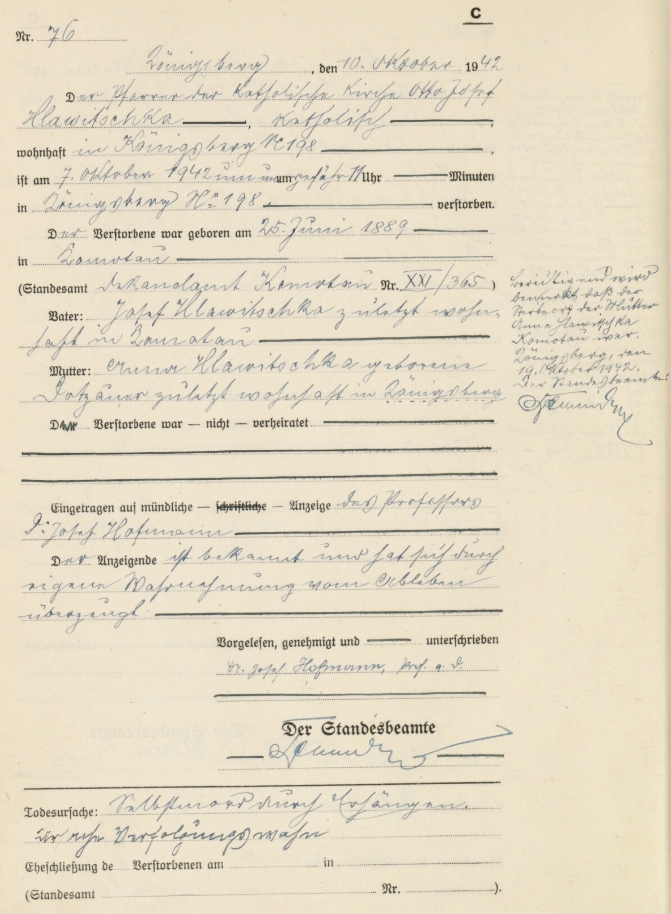 C
Nr. 76
Königsberg, den 10. Oktober 1942
Der Pfarrer der Katholische Kirche Otto Josef
Hlawitschka, Katholisch,
wohnhaft in Königsberg No 198,
ist am 7. Oktober 1942 um ungefähr 11 Uhr Minuten
in Königsberg No 198 verstorben.
Der Verstorbene war geboren am 25. Juni 1889
in Komotau
(Standesamt Dekanalamt Komotau Nr. XXI/365)
Vater: Josef Hlawitschka zuletzt wohn-
haft in Komotau
Mutter: Anna Hlawitschka geborene
Dotzauer zuletzt wohnhaft in Königsberg
Der Verstorbene war — nicht — verheiratet
Eingetragen auf mündliche — schriftliche — Anzeige des Professors
Dr. Josef Hofmann
Der Anzeigende ist bekannt und hat sich durch
eigene Wahrnehmung vom Ableben
überzeugt.
Vorgelesen, genehmigt und unterschrieben
Dr. Josef Hofmann, Prof. a. D.
Der Standesbeamte
Todesursache: Selbstmord durch Erhängen.
Ursache Verfolgungswahn
Eheschließung de Verstorbenen am in
(Standesamt Nr. ).
Berichtigend wird
bemerkt, daß der
Sterbeort der Mutter
Anna Hlawitschka
Komotau war.
Königsberg, den
19. Oktober 1942.
Der Standesbeamte: